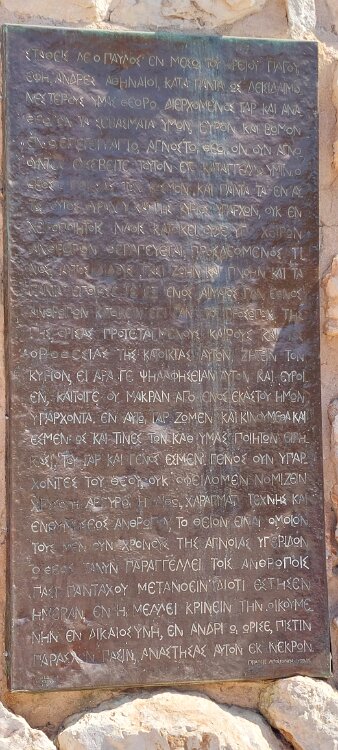 ΣΤΑΘΕΙΣ ΔΕ Ο ΠΑΥΛΟΣ ΕΝ ΜΕΣΩ ΤΟΥ ΑΡΕΙΟΥ ΠΑΓΟΥ,
ΕΦΗ, ΑΝΔΡΕΣ ΑΘΗΝΑΙΟΙ, ΚΑΤΑ ΠΑΝΤΑ ΩΣ ΔΕΙΣΙΔΑΙΜΟ
ΝΕΣΤΕΡΟΥΣ ΥΜΑΣ ΘΕΩΡΩ. ΔΙΕΡΧΟΜΕΝΟΣ ΓΑΡ ΚΑΙ ΑΝΑ
ΘΕΩΡΩΝ ΤΑ ΣΕΒΑΣΜΑΤΑ ΥΜΩΝ, ΕΥΡΟΝ ΚΑΙ ΒΩΜΟΝ
ΕΝ Ω ΕΠΕΓΕΓΡΑΠΤΟ, ΑΓΝΩΣΤΩ ΘΕΩ. ΟΝ ΟΥΝ ΑΓΝΟ
ΟΥΝΤΕΣ ΕΥΣΕΒΕΙΤΕ ΤΟΥΤΟΝ ΕΓΩ ΚΑΤΑΓΓΕΛΛΩ ΥΜΙΝ. Ο
ΘΕΟΣ Ο ΠΟΙΗΣΑΣ ΤΟΝ ΚΟΣΜΟΝ, ΚΑΙ ΠΑΝΤΑ ΤΑ ΕΝ ΑΥ
ΤΩ, ΟΥΤΟΣ ΟΥΡΑΝΟΥ ΚΑΙ ΓΗΣ ΚΥΡΙΟΣ ΥΠΑΡΧΩΝ, ΟΥΚ ΕΝ
ΧΕΙΡΟΠΟΙΗΤΟΙΣ ΝΑΟΙΣ ΚΑΤΟΙΚΕΙ, ΟΥΔΕ ΥΠΟ ΧΕΙΡΩΝ
ΑΝΘΡΩΠΩΝ ΘΕΡΑΠΕΥΕΤΑΙ, ΠΡΟΣΔΕΟΜΕΝΟΣ ΤΙ
ΝΟΣ, ΑΥΤΟΣ ΔΙΔΟΥΣ ΠΑΣΙ ΖΩΗΝ ΚΑΙ ΠΝΟΗΝ ΚΑΙ ΤΑ
ΠΑΝΤΑ. ΕΠΟΙΗΣΕ ΤΕ ΕΞ ΕΝΟΣ ΑΙΜΑΤΟΣ ΠΑΝ ΕΘΝΟΣ
ΑΝΘΡΩΠΩΝ ΚΑΤΟΙΚΕΙΝ ΕΠΙ ΠΑΝ ΤΟ ΠΡΟΣΩΠΟΝ ΤΗΣ
ΓΗΣ, ΟΡΙΣΑΣ ΠΡΟΤΕΤΑΓΜΕΝΟΥΣ ΚΑΙΡΟΥΣ ΚΑΙ ΤΑΣ
ΟΡΟΘΕΣΙΑΣ ΤΗΣ ΚΑΤΟΙΚΙΑΣ ΑΥΤΩΝ, ΖΗΤΕΙΝ ΤΟΝ
ΚΥΡΙΟΝ, ΕΙ ΑΡΑ ΓΕ ΨΗΛΑΦΗΣΕΙΑΝ ΑΥΤΟΝ ΚΑΙ ΕΥΡΟΙ
ΕΝ, ΚΑΙΤΟΙΓΕ ΟΥ ΜΑΚΡΑΝ ΑΠΟ ΕΝΟΣ ΕΚΑΣΤΟΥ ΗΜΩΝ
ΥΠΑΡΧΟΝΤΑ. ΕΝ ΑΥΤΩ ΓΑΡ ΖΩΜΕΝ ΚΑΙ ΚΙΝΟΥΜΕΘΑ ΚΑΙ
ΕΣΜΕΝ ΩΣ ΚΑΙ ΤΙΝΕΣ ΤΩΝ ΚΑΘ ΥΜΑΣ ΠΟΙΗΤΩΝ ΕΙΡΗ
ΚΑΣΙ, ΤΟΥ ΓΑΡ ΚΑΙ ΓΕΝΟΣ ΕΣΜΕΝ. ΓΕΝΟΣ ΟΥΝ ΥΠΑΡ
ΧΟΝΤΕΣ ΤΟΥ ΘΕΟΥ, ΟΥΚ ΟΦΕΙΛΟΜΕΝ ΝΟΜΙΖΕΙΝ
ΧΡΥΣΩ Η ΑΡΓΥΡΩ Η ΛΙΘΩ, ΧΑΡΑΓΜΑΤΙ ΤΕΧΝΗΣ ΚΑΙ
ΕΝΘΥΜΗΣΕΩΣ ΑΝΘΡΩΠΟΥ, ΤΟ ΘΕΙΟΝ ΕΙΝΑΙ ΟΜΟΙΟΝ
ΤΟΥΣ ΜΕΝ ΟΥΝ ΧΡΟΝΟΥΣ ΤΗΣ ΑΓΝΟΙΑΣ ΥΠΕΡΙΔΩΝ
Ο ΘΕΟΣ ΤΑΝΥΝ ΠΑΡΑΓΓΕΛΛΕΙ ΤΟΙΣ ΑΝΘΡΩΠΟΙΣ
ΠΑΣΙ ΠΑΝΤΑΧΟΥ ΜΕΤΑΝΟΕΙΝ ΔΙΟΤΙ ΕΣΤΗΣΕΝ
ΗΜΕΡΑΝ, ΕΝ Η, ΜΕΛΛΕΙ ΚΡΙΝΕΙΝ ΤΗΝ ΟΙΚΟΥΜΕ
ΝΗΝ ΕΝ ΔΙΚΑΙΟΣΥΝΗ, ΕΝ ΑΝΔΡΙ Ω, ΩΡΙΣΕ, ΠΙΣΤΙΝ
ΠΑΡΑΣΧΩΝ ΠΑΣΙΝ, ΑΝΑΣΤΗΣΑΣ ΑΥΤΟΝ ΕΚ ΝΕΚΡΩΝ.